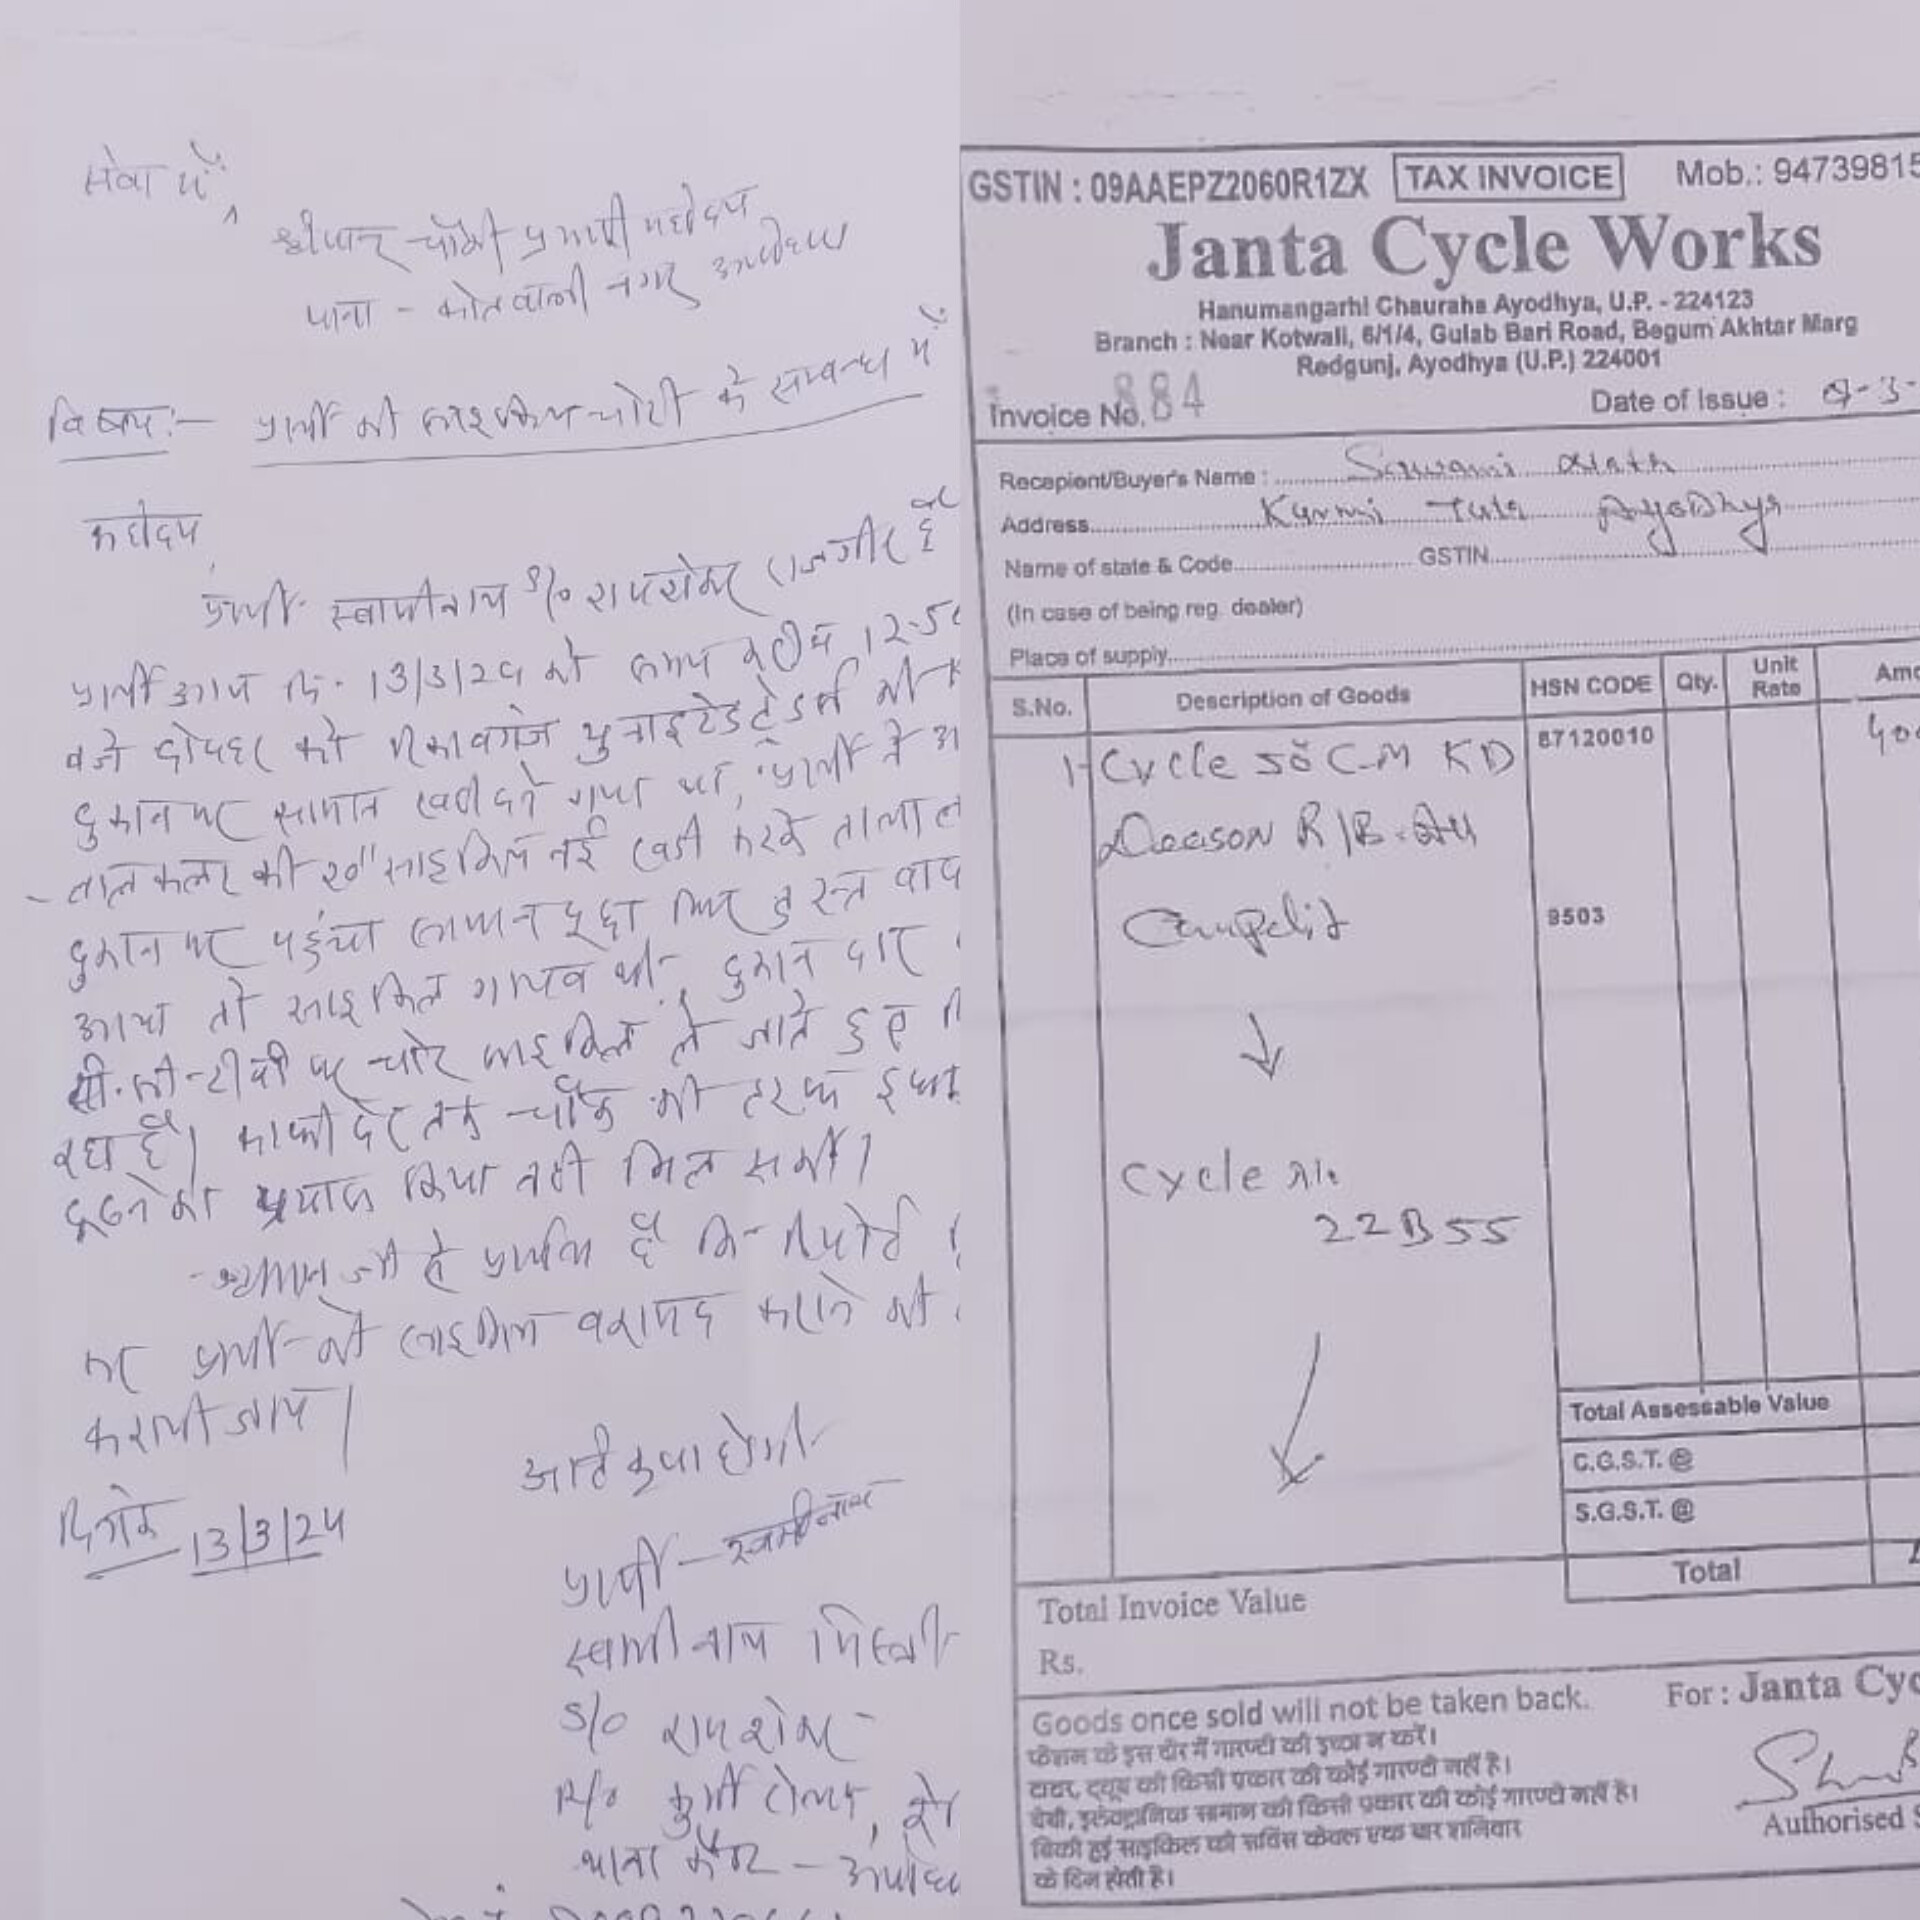 सेवा में,
श्रीमान चौकी प्रभारी महोदय
थाना - कोतवाली नगर अयोध्या
विषय:- प्रार्थी की साइकिल चोरी के सम्बन्ध में
महोदय,
प्रार्थी स्वामीनाथ S/o रामशंकर राजगीर है
प्रार्थी आज दि. 13/3/24 को समय करीब 12-50
बजे दोपहर को रिकाबगंज युनाइटेड ट्रेडर्स की
दुकान पर सामान खरीदने गया था, प्रार्थी ने
लाल कलर की 20" साइकिल नई खड़ी करके ताला
दुकान पर पहुंचा सामान पूछा फिर तुरन्त
आया तो साइकिल गायब थी, दुकानदार
सी.सी-टीवी पर चोर साइकिल ले जाते हुए
रहा है। काफी देर तक चौक की तरफ
ढूढने का प्रयास किया नही मिल सकी।
श्रीमान् जी से प्रार्थना है कि रिपोर्ट
कर प्रार्थी की साइकिल बरामद कराने की
करायी जाय।
अति कृपा होगी
दिनांक 13/3/24
प्रार्थी - स्वामीनाथ
स्वामीनाथ मिस्त्री
S/o
R/o कुर्मी टोला,
थाना कैण्ट -
GSTIN : 09AAEPZ2060R1ZX TAX INVOICE Mob.: 94739815
Janta Cycle Works
Hanumangarhi Chauraha Ayodhya, U.P. - 224123
Branch : Near Kotwali, 6/1/4, Gulab Bari Road, Begum Akhtar Marg
Redgunj, Ayodhya (U.P.) 224001
Invoice No. 884 Date of Issue :
Recepient/Buyer's Name : Sawami Nath
Address Kurmi Tula Ayodhya
Name of state & Code GSTIN
(In case of being reg. dealer)
Place of supply
S.No. Description of Goods HSN CODE Qty. Unit Rate
1- Cycle C-M KD 87120010
R/B
Campelit 9503
Cycle No.
22B55
Total Assessable Value
C.G.S.T. @
S.G.S.T. @
Total
Total Invoice Value
Rs.
Goods once sold will not be taken back. For : Janta Cyc
फैशन के इस दौर में गारण्टी की इच्छा न करें।
टायर, ट्यूब की किसी प्रकार की कोई गारण्टी नहीं है।
बेबी, इलेक्ट्रानिक सामान की किसी प्रकार की कोई गारण्टी नहीं है।
बिकी हुई साइकिल की सर्विस केवल एक बार शनिवार
के दिन होती है।
Authorised S